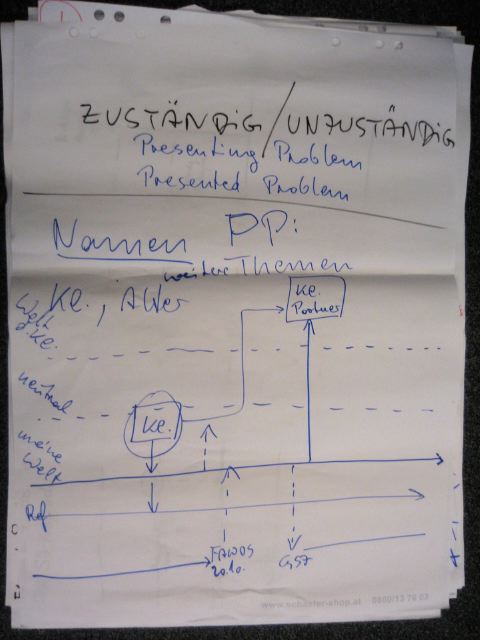 ZUSTÄNDIG/UNZUSTÄNDIG
Presenting Problem
Presented Problem
Namen PP:
weitere Themen
Ke., Alter
Welt
d. Ke.
Ke.
Partner
neutral
Ke.
meine
Welt
Ref
FAWOS
20.10.
www.schaefer-shop.at 0800/13 76 03